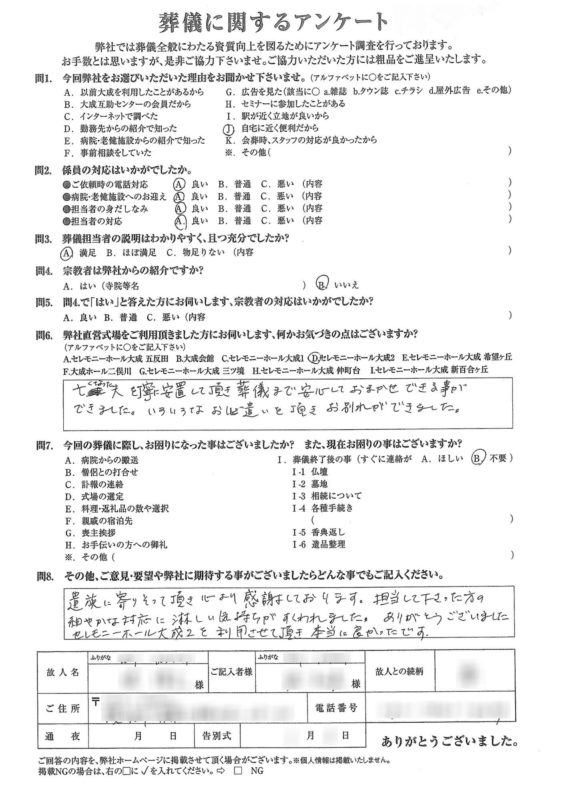 葬儀に関するアンケート
弊社では葬儀全般にわたる資質向上を図るためにアンケート調査を行っております。
お手数とは思いますが、是非ご協力下さいませ。ご協力いただいた方には粗品をご進呈いたします。
問1. 今回弊社をお選びいただいた理由をお聞かせ下さいませ。(アルファベットに○をご記入下さい)
A. 以前大成を利用したことがあるから G. 広告を見た(該当に○ a.雑誌 b.タウン誌 c.チラシ d.屋外広告 e.その他)
B. 大成互助センターの会員だから H. セミナーに参加したことがある
C. インターネットで調べた I. 駅が近く立地が良いから
D. 勤務先からの紹介で知った J. 自宅に近く便利だから
E. 病院・老健施設からの紹介で知った K. 会葬時、スタッフの対応が良かったから
F. 事前相談をしていた ※. その他( )
問2. 係員の対応はいかがでしたか。
●ご依頼時の電話対応 A. 良い B. 普通 C. 悪い (内容 )
●病院・老健施設へのお迎え A. 良い B. 普通 C. 悪い (内容 )
●担当者の身だしなみ A. 良い B. 普通 C. 悪い (内容 )
●担当者の対応 A. 良い B. 普通 C. 悪い (内容 )
問3. 葬儀担当者の説明はわかりやすく、且つ充分でしたか?
A. 満足 B. ほぼ満足 C. 物足りない (内容 )
問4. 宗教者は弊社からの紹介ですか?
A. はい (寺院等名 ) B. いいえ
問5. 問4.で「はい」と答えた方にお伺いします、宗教者の対応はいかがでしたか?
A. 良い B. 普通 C. 悪い (内容 )
問6. 弊社直営式場をご利用頂きました方にお伺いします、何かお気づきの点はございますか?
(アルファベットに○をご記入下さい)
A.セレモニーホール大成 五反田 B.大成会館 C.セレモニーホール大成1 D.セレモニーホール大成2 E.セレモニーホール大成 希望ヶ丘
F.大成ホール二俣川 G.セレモニーホール大成 三ツ境 H.セレモニーホール大成 仲町台 I.セレモニーホール大成 新百合ヶ丘
丁寧に安置して頂き葬儀まで安心しておまかせできる事が
できました。いろいろなお心遣いを頂きお別れができました。
問7. 今回の葬儀に際し、お困りになった事はございましたか? また、現在お困りの事はございますか?
A. 病院からの搬送 I. 葬儀終了後の事 (すぐに連絡が A. ほしい B. 不要)
B. 僧侶との打合せ I-1 仏壇
C. 訃報の連絡 I-2 墓地
D. 式場の選定 I-3 相続について
E. 料理・返礼品の数や選択 I-4 各種手続き
F. 親戚の宿泊先 ( )
G. 喪主挨拶 I-5 香典返し
H. お手伝いの方への御礼 I-6 遺品整理
※. その他 ( )
問8. その他、ご意見・要望や弊社に期待する事がございましたらどんな事でもご記入ください。
遺族に寄りそって頂き心より感謝しております。担当して下さった方の
細やかな対応に淋しい気持ちがすくわれました。ありがとうございました
セレモニーホール大成2を利用させて頂き本当に良かったです。
ふりがな ふりがな
故人名 様 ご記入者様 様 故人との続柄
ご住所 〒 電話番号
通夜 月 日 告別式 月 日 ありがとうございました。
ご回答の内容を、弊社ホームページに掲載させて頂く場合がございます。※個人情報は掲載いたしません。
掲載NGの場合は、右の□に✓を入れてください。⇨ □ NG